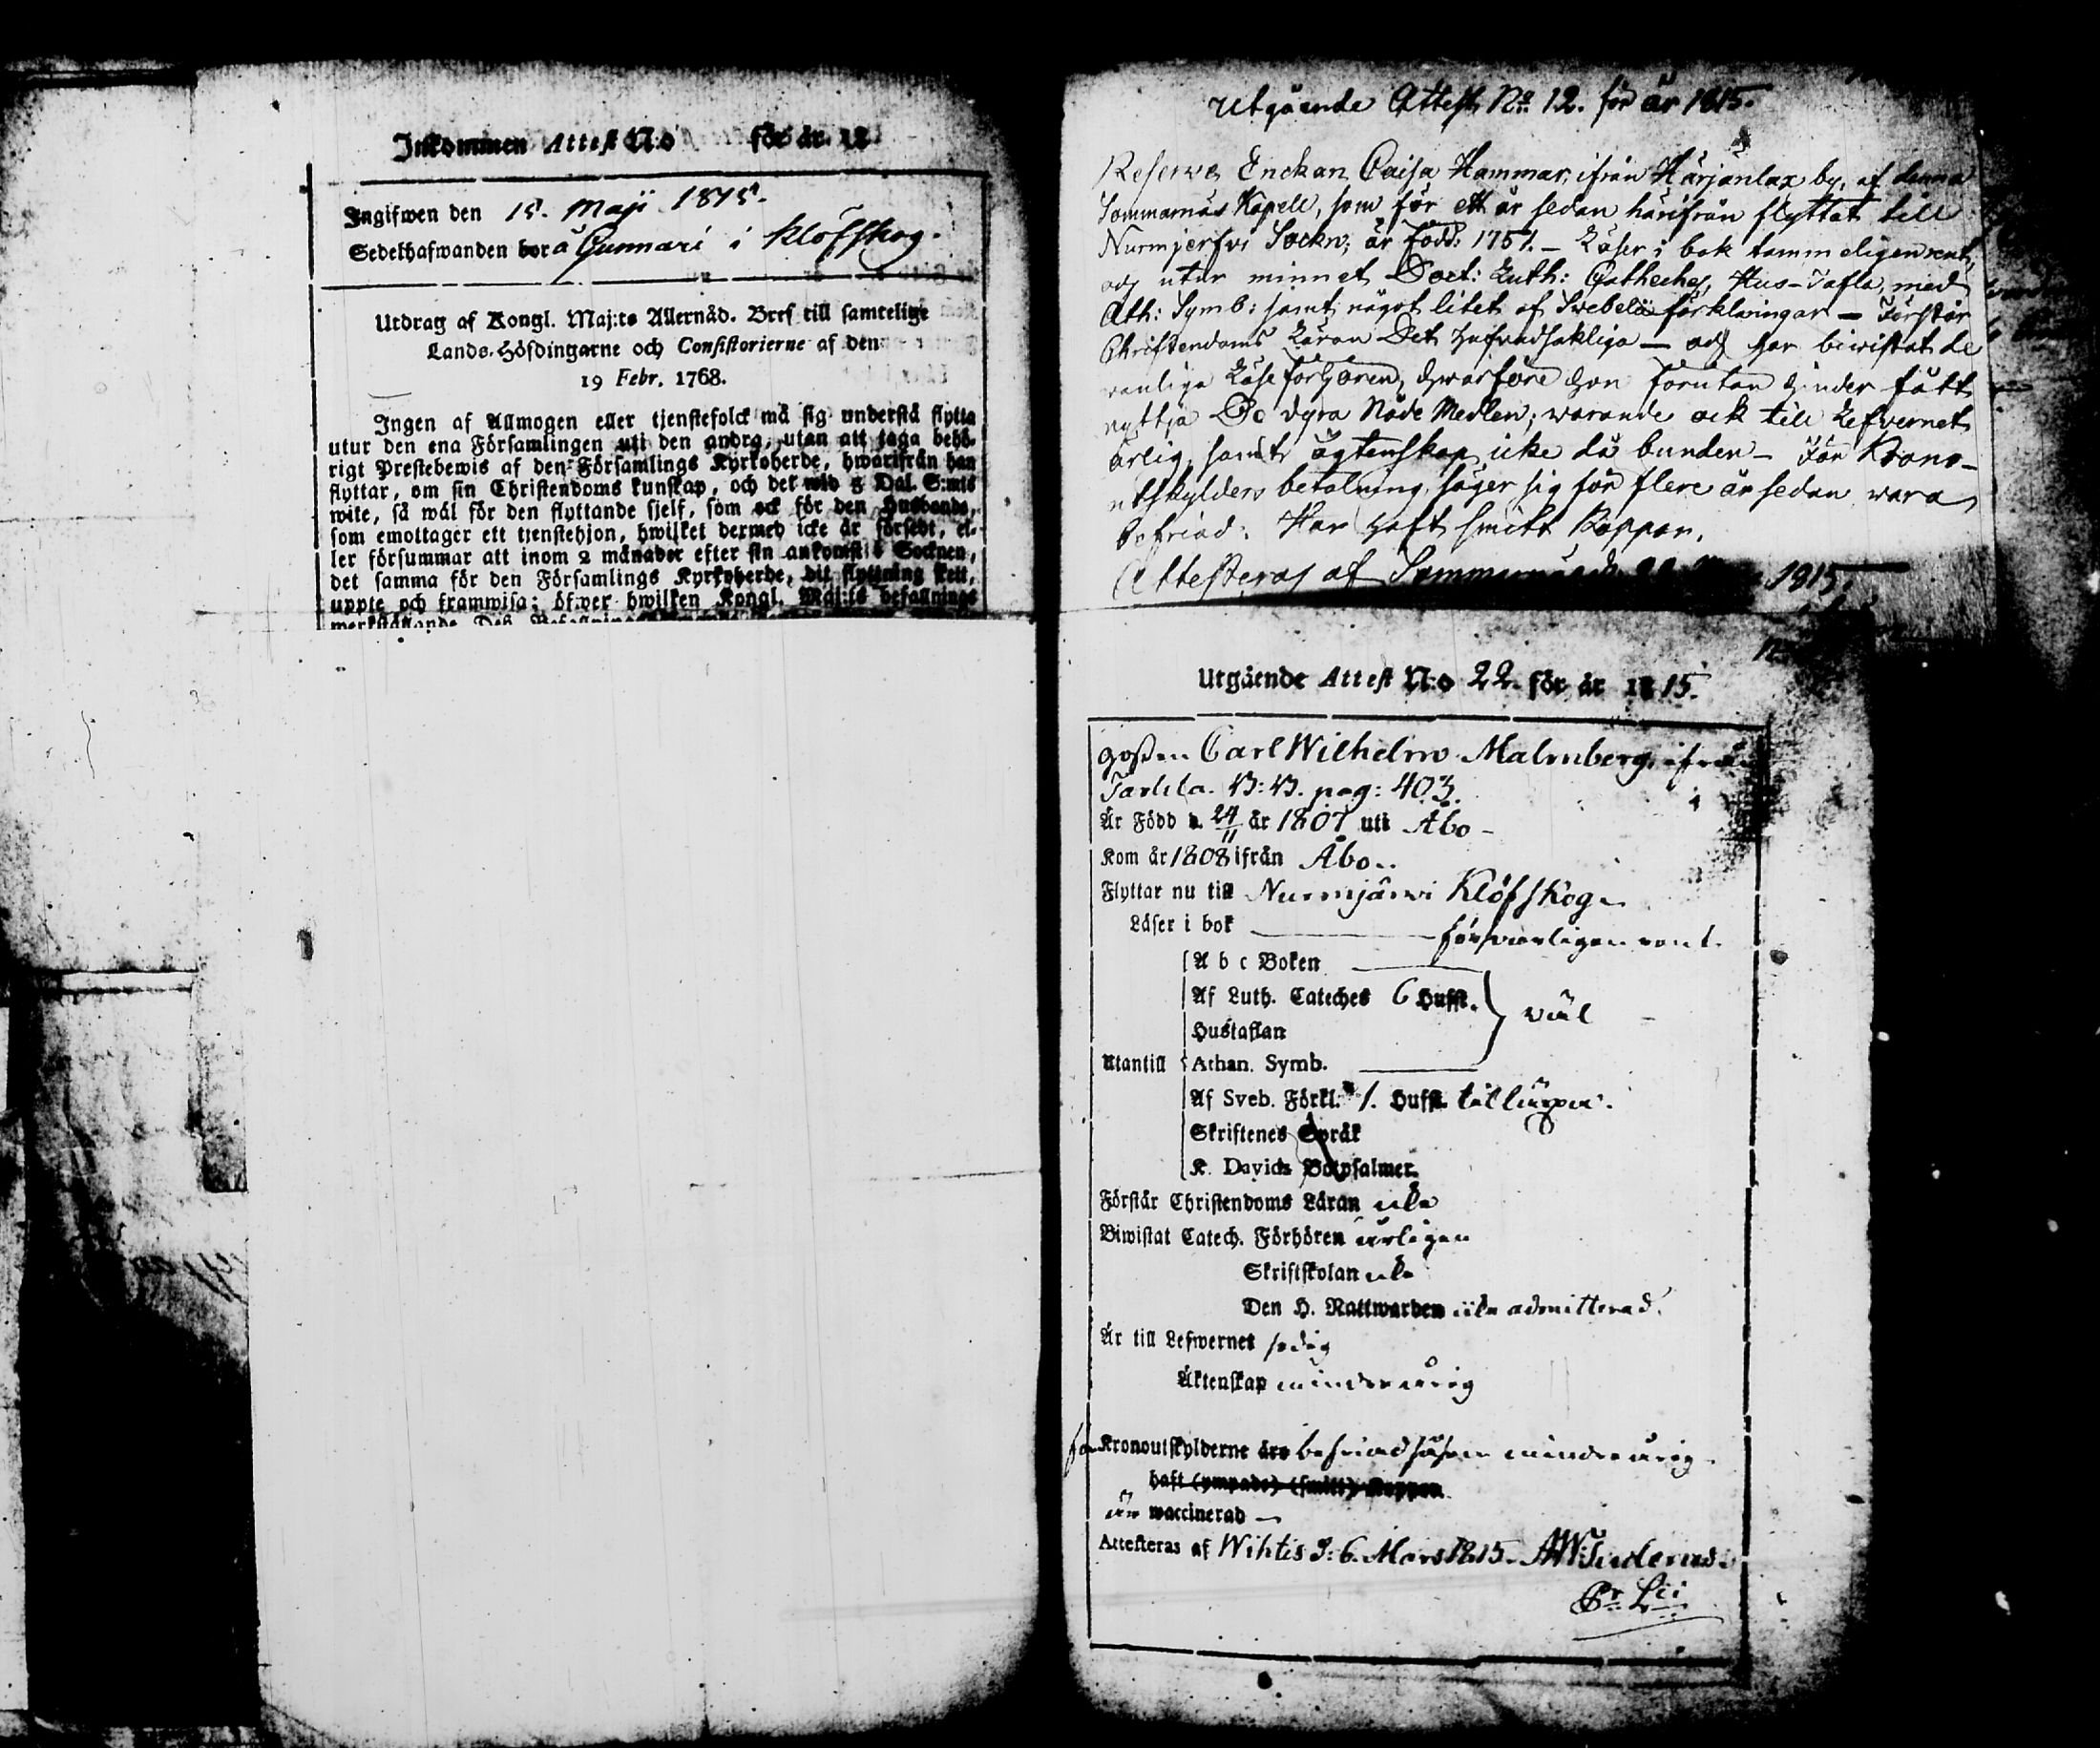 Inkommen Attest N:o för år 18
Ingifwen den 15. Maji 1815.
Sedelhafwanden bor å Gunnari i Klöfskog.
Utdrag af Kongl. Maj:ts Allernåd. Bref till samtelige
Lands-Höfdingarne och Consistorierne af den
19 Febr. 1768.
Ingen af Allmogen eller tjenstefolck må sig understå flytta
utur den ena Församlingen uti den andra, utan att taga behö-
rigt Prestebewis af den Församlings Kyrkoherde, hwarifrån han
flyttar, om sin Christendoms kunskap, och det wid 5 Dal. S:mts
wite, så wäl för den flyttande sjelf, som ock för den Husbonde,
som emottager ett tjenstehjon, hwilket dermed icke är försedt, el-
ler försummar att inom 2 månader efter sin ankomst i Socknen,
det samma för den Församlings Kyrkoherde, dit flyttning skett,
uppte och framwisa; öfwer hwilken Kongl. Maj:ts befallnings
Utgående Attest No. 12. för år 1815.
Reserve Enckan Caisa Hammar, ifrån Härjänlax by, af denna
Sommarnäs Kapell, som för ett år sedan härifrån flyttat till
Nurmjerfvi Sockn; är född: 1751. – Läser i bok tammeligen rent,
och utur minnet Doct: Luth: Catheches, Hus-Tafla, med
Ath: Symb: samt något litet af Svebelii förklaringar — Förstår
Christendoms Läran Det hufvudsakliga — och har biwistat de
vanliga Läseförhören, hvarföre hon förutan hinder fått
nyttja De dyra Nåde Medlen; warande ock till Lefvernet
ärlig, samt ägtenskap icke då bunden – För Krono-
utskylders betalning säger sig för flere år sedan wara
befriad. Har haft smitt Koppor.
Attesteras af 1815.
Utgående Attest N:o 22. för år 1815.
Gossen Carl Wilhelm Malmberg, ifrån
Tarlila. B:B. pag: 403.
Är Född d. 24/11 år 1807 uti Åbo –
Kom år 1808 ifrån Åbo..
Flyttar nu till Nurmijärwi Klöfskog.
Läser i bok försvarligen rent.
A b c Boken
Af Luth. Cateches 6 Hufst. väl
Hustaflan
Utantill Athan. Symb.
Af Sveb. Förkl. 1. Hufst.
Skriftenes Språk
K. Davids Botpsalmer.
Förstår Christendoms Läran icke
Biwistat Catech. Förhören årligen
Skriftskolan icke
Den H. Nattwarden icke admitterad.
Är till Lefwernet sedig
Äktenskap minderårig
för Kronoutskylderne äro befriad såsom minderårig.
haft (ympade) (smitt) Koppor
är waccinerad –
Attesteras af Wihtis d: 6. Mars 1815.